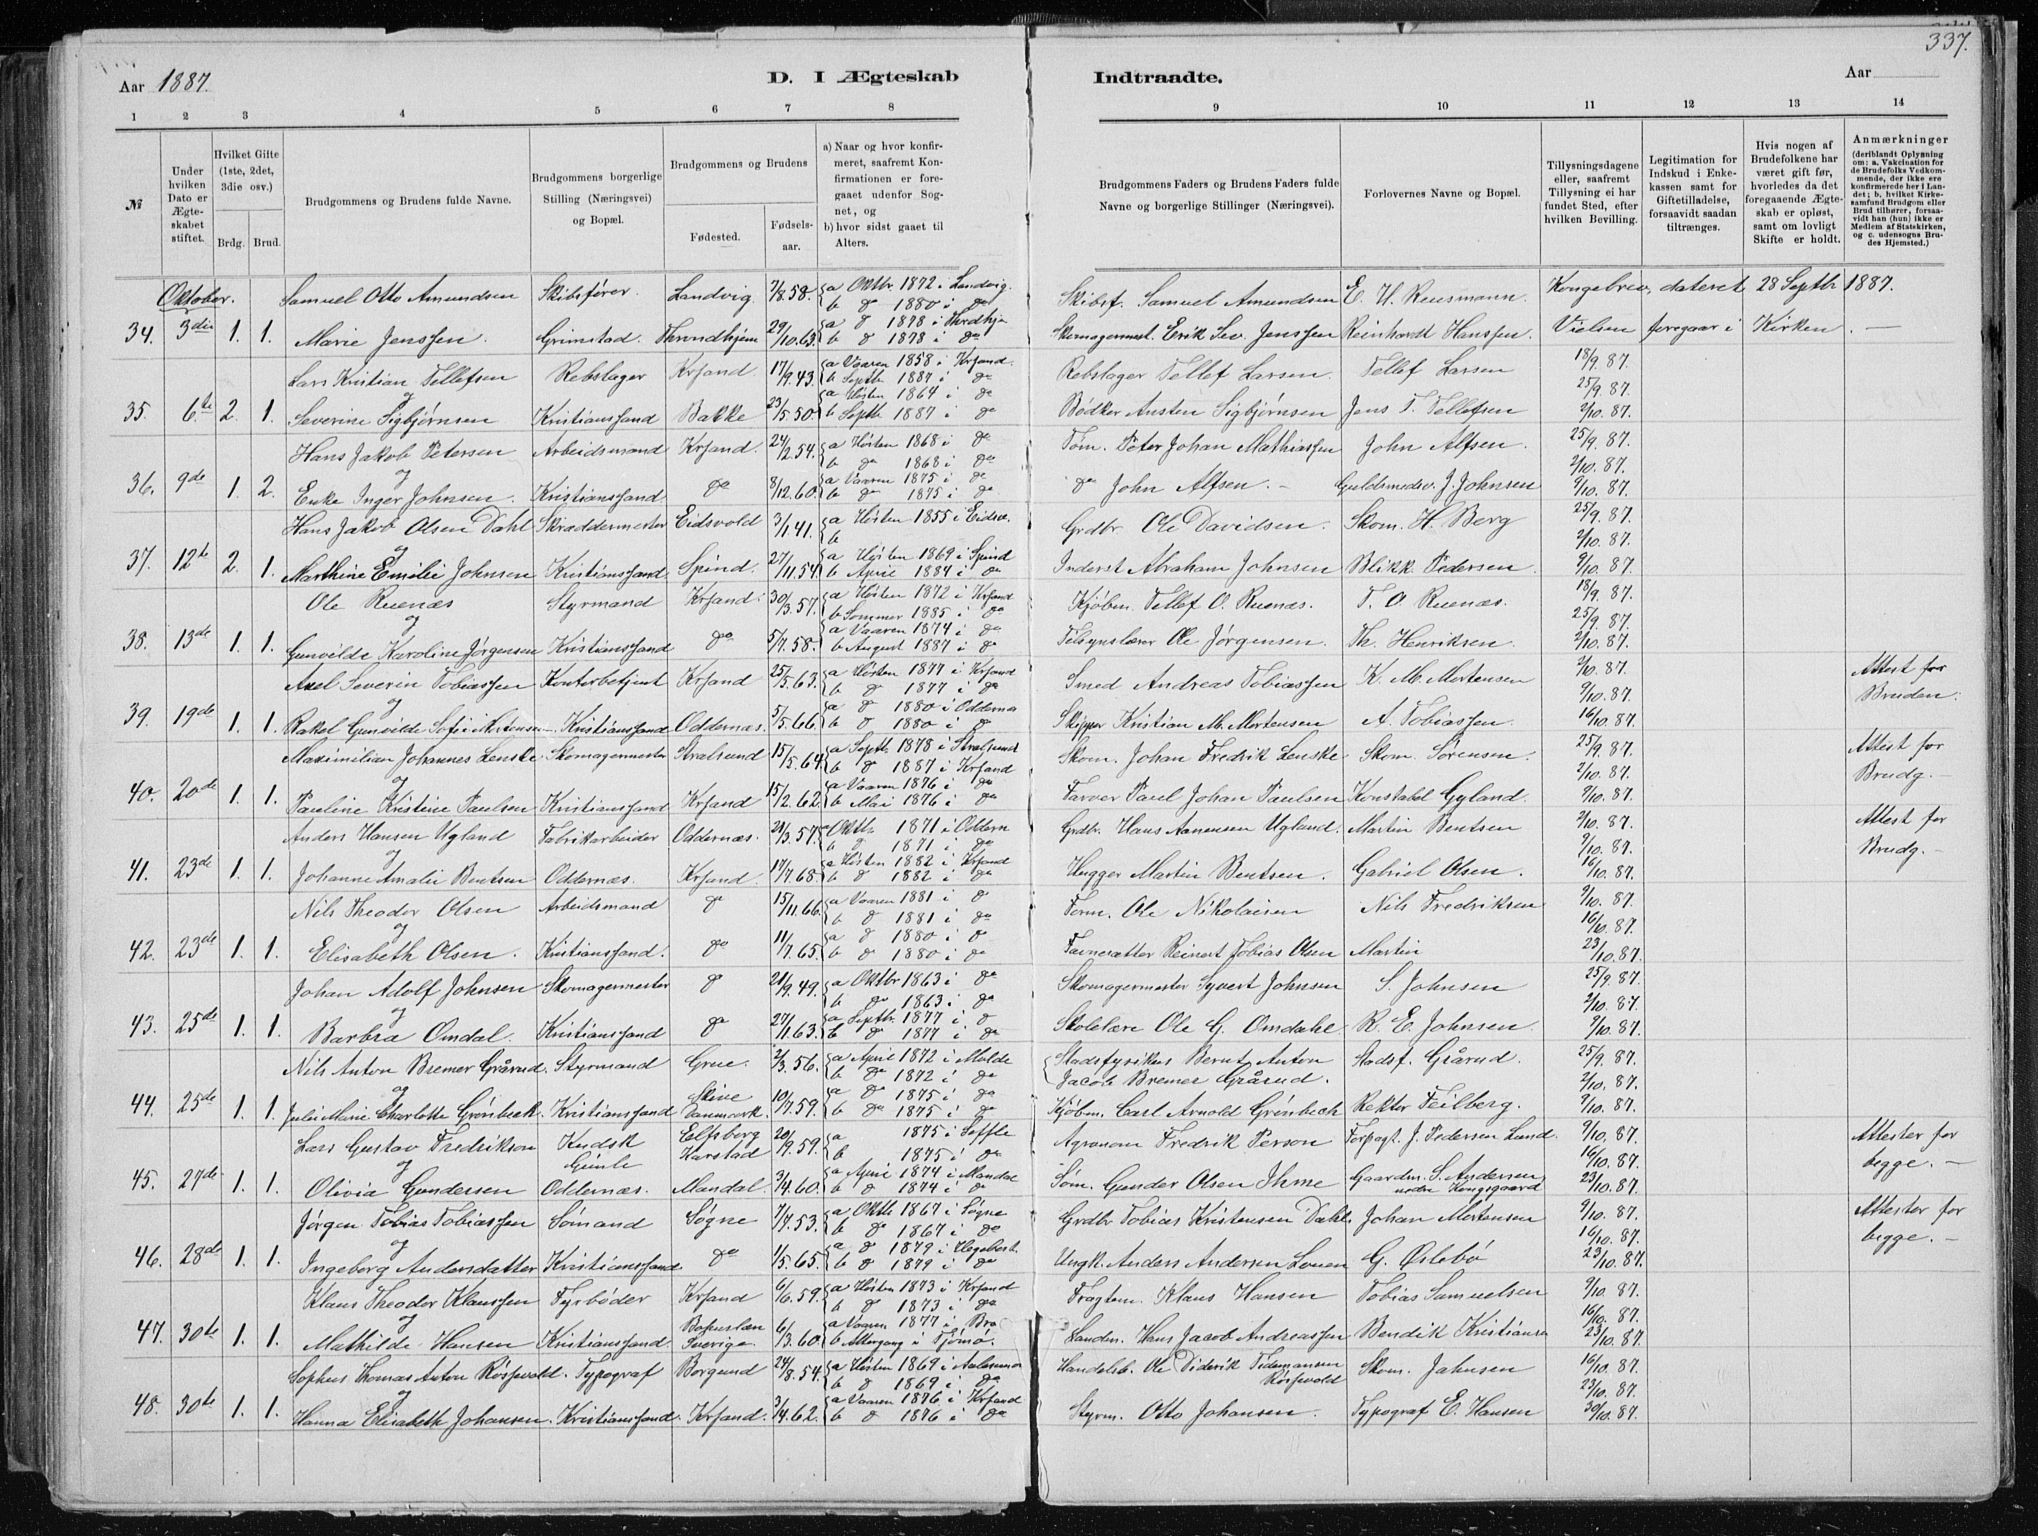 337.
Aar 1887. D. I Ægteskab Indtraadte. Aar
1 2 3 4 5 6 7 8 9 10 11 12 13 14
№
Under hvilken Dato er Ægteskabet stiftet.
Hvilket Gifte (1ste, 2det, 3die osv.)
Brdg. Brud.
Brudgommens og Brudens fulde Navne.
Brudgommens borgerlige Stilling (Næringsvei) og Bopæl.
Brudgommens og Brudens
Fødested. Fødselsaar.
a) Naar og hvor konfirmeret, saafremt Konfirmationen er foregaaet udenfor Sognet, og
b) hvor sidst gaaet til Alters.
Brudgommens Faders og Brudens Faders fulde Navne og borgerlige Stillinger (Næringsvei).
Forlovernes Navne og Bopæl.
Tillysningsdagene eller, saafremt Tillysning ei har fundet Sted, efter hvilken Bevilling.
Legitimation for Indskud i Enkekassen samt for Giftetilladelse, forsaavidt saadan tiltrænges.
Hvis nogen af Brudefolkene har været gift før, hvorledes da det foregaaende Ægteskab er opløst, samt om lovligt Skifte er holdt.
Anmærkninger (deriblandt Oplysning om: a. Vakcination for de Brudefolks Vedkommende, der ikke ere konfirmerede her i Landet; b. hvilket Kirkesamfund Brudgom eller Brud tilhører, forsaavidt han (hun) ikke er Medlem af Statskirken, og c. udensogns Brudes Hjemsted.)
Oktober. Samuel Otto Amundsen Skibsfører. Landvig 7/8.58. a Oktbr. 1872 i Landvig. b do 1880 i do Skibsf. Samuel Amundsen E. H. Reusmann. Kongebrev, dateret 28 Septbr 1887.
34. 3die 1. 1. Marie Jenssen. Grimstad. Throndhjem 29/10.63. a do 1878 i Thrdhjm b do 1878 i do Skomagermest. Erik Sev. Jenssen Reinhardt Hanssen. Vielsen foregaar i Kirken. —
Lars Kristian Tellefsen Rebslager Krsand. 17/9.43. a Vaaren 1858 i Krsand. b Septbr 1887 i do Rebslager Tellef Larsen. Tellef Larsen 18/9.87.
og 25/9.87.
35. 6te 2. 1. Severine Sigbjørnsen Kristianssand Bakke 23/5.50. a Høsten 1864 i do b Septb. 1887 i do Bødker Ansten Sigbjørnsen Jens T. Tellefsen 2/10.87.
Hans Jakob Petersen Arbeidsmand Krsand. 24/2.54. a Høsten 1868 i do b do 1868 i do Tøm. Peter Johan Mathiassen John Alfsen. 25/9.87.
og 2/10.87.
36. 9de 1. 2. Enke Inger Johnsen. Kristianssand do 8/12.60. a Vaaren 1875 i do b do 1875 i do do John Alfsen. — Guldsmedsv. J. Johnsen 9/10.87.
Hans Jakob Olsen Dahl Skræddermester Eidsvold 3/1.41. a Høsten 1855 i Eidsv. b Grdbr. Ole Davidsen. Skom. H. Berg 25/9.87.
og 2/10.87.
37. 12te 2. 1. Marthine Emilie Johnsen Kristianssand. Spind. 27/11.54. a Høsten 1869 i Spind b April 1884 i do Inderst Abraham Johnsen Blikk. Pedersen. 9/10.87.
Ole Ruenæs Styrmand Krsand. 30/3.57. a Høsten 1872 i Krsand b Sommer 1885 i do Kjøbm. Tellef O. Ruenæs. T. O. Ruenæs. 18/9.87.
og 25/9.87.
38. 13de 1. 1. Gunvilde Karoline Jørgensen Kristianssand do 5/7.58. a Vaaren 1874 i do b August 1887 i do Tilsynslærer Ole Jørgensen. Th. Henriksen. 2/10.87.
Axel Severin Tobiassen Kontorbetjent Krsand 25/5.63. a Høsten 1877 i Krsand b do 1877 i do Smed Andreas Tobiassen K. M. Mortensen 2/10.87. Attest for
og 9/10.87. Bruden.
39. 19de 1. 1. Rakel Gunvilde Sofie Mortensen Kristianssand Oddernæs. 5/5.66. a do 1880 i Oddernæs b do 1880 i do Skipper Kristian M. Mortensen A. Tobiassen. 16/10.87.
Maximilian Johannes Lenske Skomagermester Stralsund 15/5.64. a Septb. 1878 i Stralsund b do 1887 i Krsand Skom. Johan Fredrik Lenske Skom. Sørensen. 25/9.87. Attest for
og 2/10.87. Brudg. —
40. 20de 1. 1. Pauline Kristine Paulsen Kristianssand Krsand 15/2.62. a Vaaren 1876 i do b Mai 1876 i do Farver Paul Johan Paulsen Konstabel Gyland. 9/10.87.
Anders Hansen Ugland Fabrikarbeider Oddernæs. 21/3.57. a Oktb. 1871 i Oddern b do 1871 i do Grdbr. Hans Aanensen Ugland. Martin Bentsen 2/10.87. Attest for
og 9/10.87. Brudg. —
41. 23de 1. 1. Johanne Amalie Bentsen Oddernæs. Krsand. 17/7.68. a Høsten 1882 i Krsand b do 1882 i do Hugger Martin Bentsen. Gabriel Olsen. 16/10.87.
Nils Theodor Olsen Arbeidsmand do 15/11.66. a Vaaren 1881 i do b do 1881 i do Form. Ole Nikolaisen Nils Fredriksen 9/10.87.
og 16/10.87.
42. 23de 1. 1. Elisabeth Olsen. Kristianssand. do 11/7.65. a do 1880 i do b do 1880 i do Reinert Tobias Olsen Martin 23/10.87.
Johan Adolf Johnsen Skomagermester do 21/9.49. a Oktbr 1863 i do b do 1863 i do Skomagermester Syvert Johnsen S. Johnsen 25/9.87.
og 2/10.87.
43. 25de 1. 1. Barbra Omdal. Kristianssand do 27/1.63. a Septbr. 1877 i do b do 1877 i do Skolelære Ole G. Omdahl R. E. Johnsen. 9/10.87.
Nils Anton Bremer Grårud. Styrmand Grue. 2/3.56. a April 1872 i Molde b do 1872 i do Stadsfysikus Bernt Anton Jacob Bremer Grårud. Stadsf. Grårud. 25/9.87.
og 2/10.87.
44. 25de 1. 1. Julie Marie Charlotte Grønbeck. Kristianssand Skive Danmark 10/7.59. a do 1875 i do b do 1875 i do Kjøbm. Carl Arnold Grønbech Rektor Feilberg. 9/10.87.
Lars Gustav Fredrikson Kudsk Gimle Elfsborg Karstad 20/9.59. a 1875 i Seffle b 1875 i do Agronom Fredrik Person Forpagt. J. Pedersen Lund. 9/10.87. Attester for
og 16/10.87. begge. —
45. 27de 1. 1. Olivia Gundersen Oddernæs. Mandal. 3/4.60. a April 1874 i Mandal b do 1874 i do Tøm. Gunder Olsen Ihme Gaardm. S. Andersen nedre Kongsgaard 23/10.87.
Jørgen Tobias Tobiassen Sømand Søgne 7/7.53. a Oktb 1867 i Søgne b do 1867 i do Grdbr Tobias Kristensen Dahl. Johan Mortensen 9/10.87. Attester for
og 16/10.87. begge. —
46. 28de 1. 1. Ingeborg Andersdatter Kristianssand do 1/5.65. a do 1879 i Hegebost. b do 1879 i do Ungk. Anders Andersen Louen G. Øslebø 23/10.87.
Klaus Theodor Klaussen Fyrbøder Krsand 6/6.59. a Høsten 1873 i Krsand b do 1873 i do Fragtem. Klaus Hansen Tobias Samuelsen 9/10.87.
og 16/10.87.
47. 30te 1. 1. Mathilde Hansen Kristianssand. Bohuslæn Sverige 6/3.60. a Vaaren 1877 i Bro b Altergang i Tjømø. Landm. Hans Jacob Andreassen Bendik Kristiansen 23/10.87.
Sophus Thomas Anton Røsswald. Typograf Borgund 24/8.54. a Høsten 1869 i Aalesund b do 1869 i do Handelsb. Ole Diderik Tidemansen Røsswald Skom. Jahnsen 16/10.87.
og 23/10.87.
48. 30te 1. 1. Hanna Elisabeth Johansen. Kristianssand. Krsand. 3/4.62. a Vaaren 1876 i Krsand b do 1876 i do Styrm. Otto Johansen. Typograf E. Hansen 30/10.87.